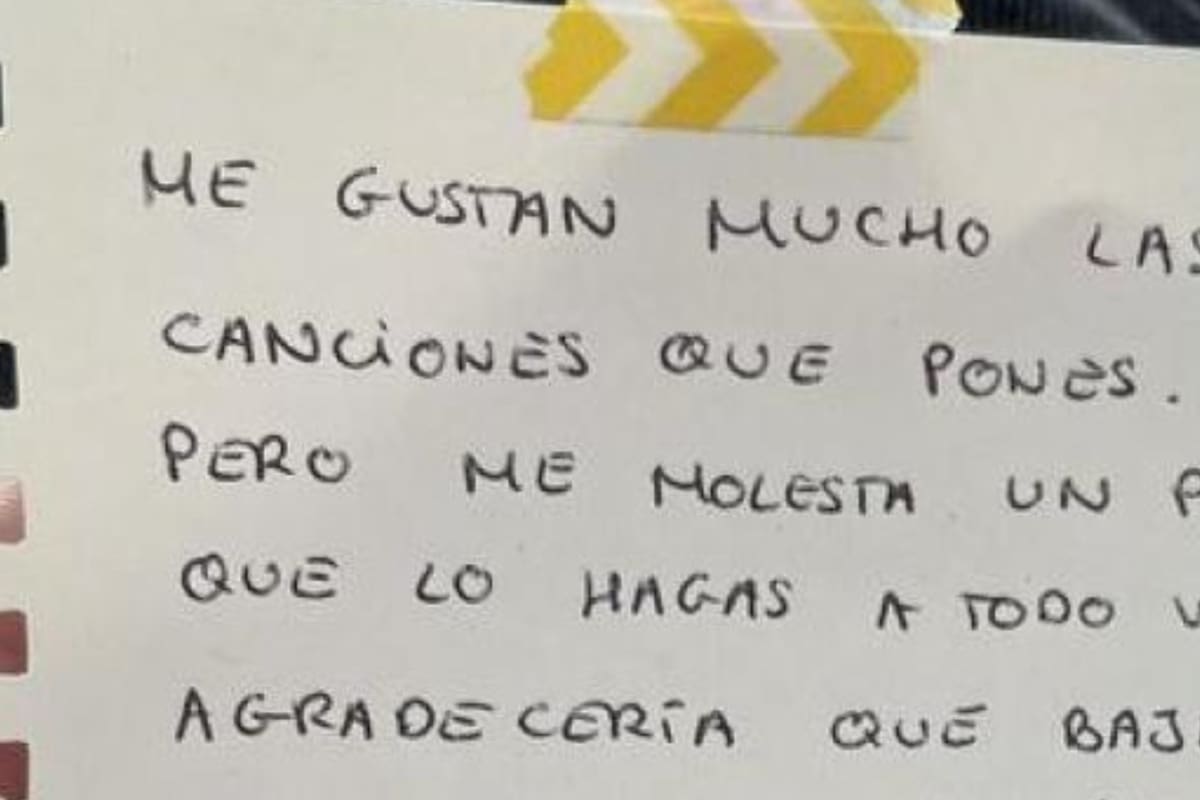 ME GUSTAN MUCHO LAS
CANCIONES QUE PONES.
PERO ME MOLESTA UN
QUE LO HAGAS A TODO
AGRADECERÍA QUE